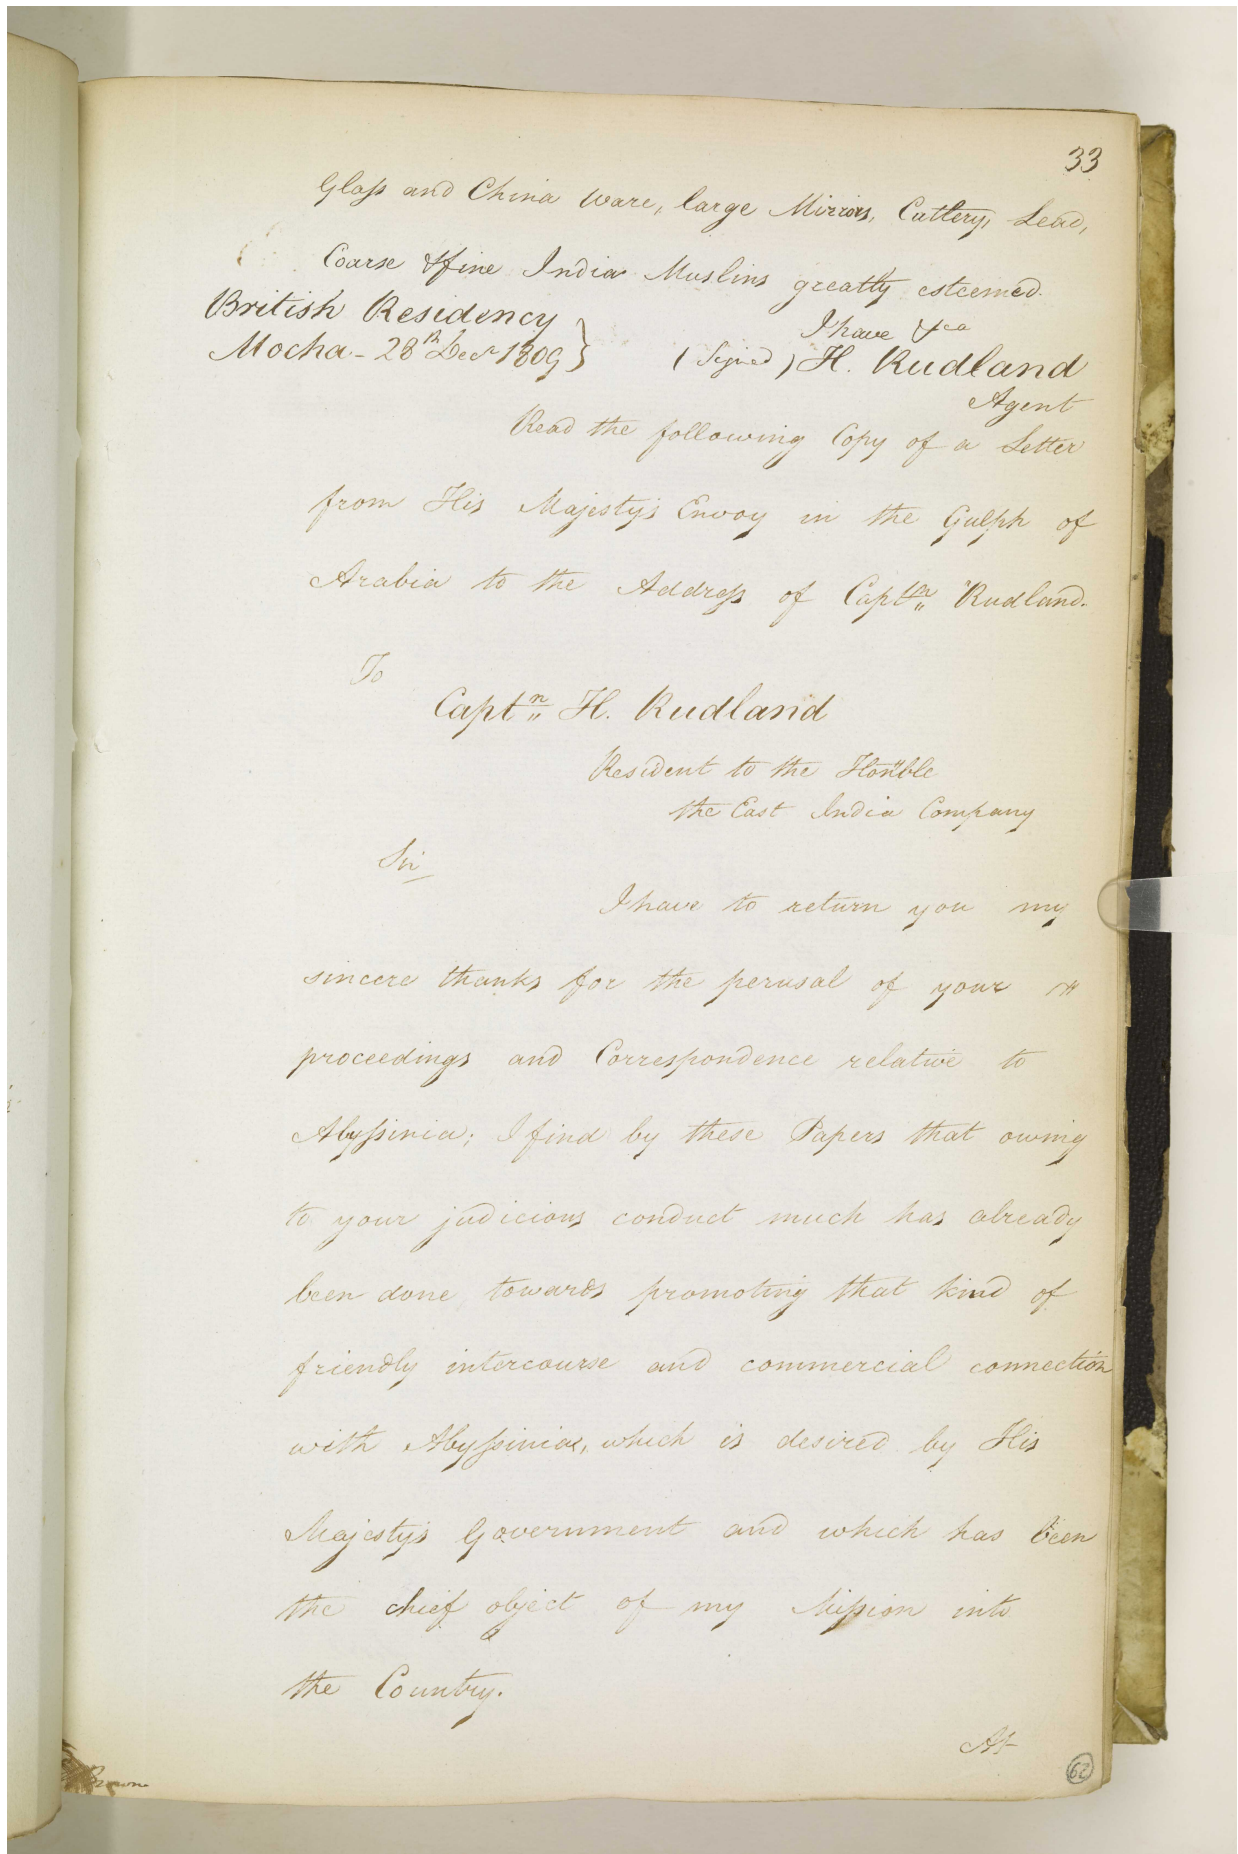 33
Glass and China Ware, large Mirrors, Cutlery, Lead,
Coarse & fine India Muslins greatly esteemed.
British Residency
Mocha - 28th Decr 1809 }
I have &ca
(Signed) H. Rudland
Agent
Read the following Copy of a Letter
from His Majesty's Envoy in the Gulph of
Arabia to the Address of Captn Rudland.
To
Captn H. Rudland
Resident to the Honble
the East India Company
Sir
I have to return you my
sincere thanks for the perusal of your
proceedings and Correspondence relative to
Abyssinia; I find by these Papers that owing
to your judicious conduct much has already
been done towards promoting that kind of
friendly intercourse and commercial connection
with Abyssinia, which is desired by His
Majesty's Government and which has been
the chief object of my Mission into
the Country.
At
62
Browne